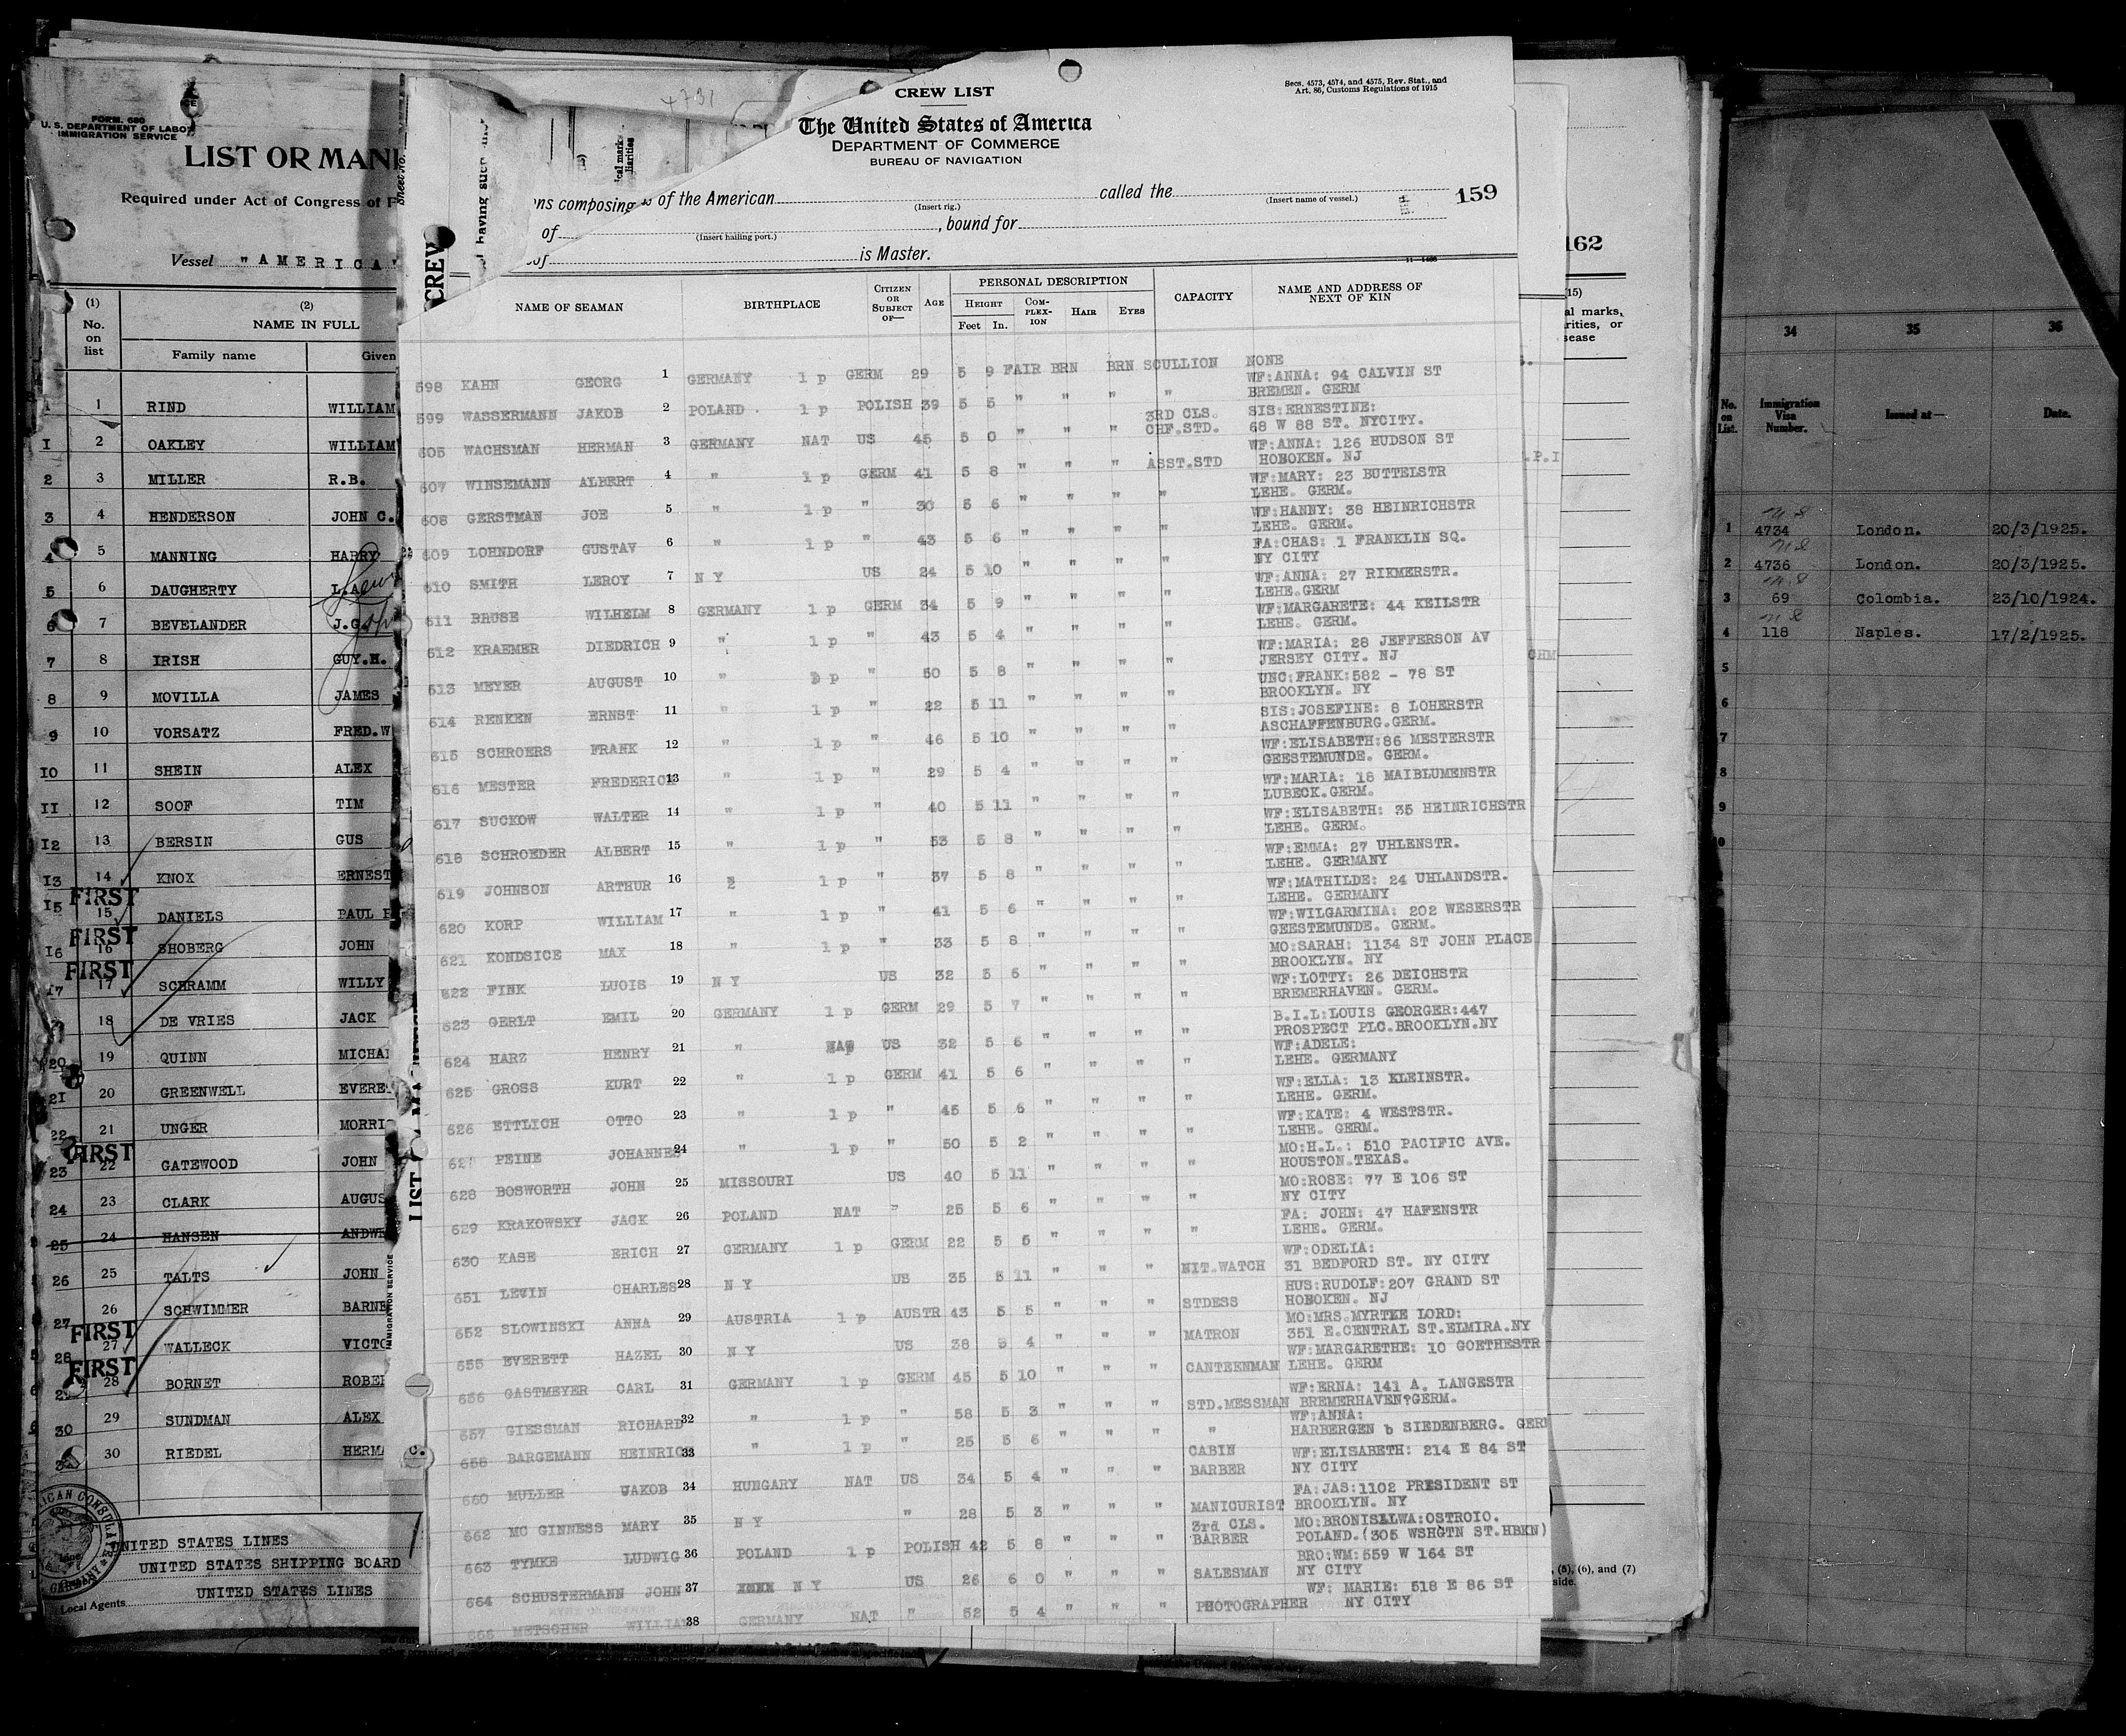 FORM. 680
U. S. DEPARTMENT OF LABOR
IMMIGRATION SERVICE
LIST OR MANI
Required under Act of Congress of F
Vessel "AMERICA"
(1) (2)
No. on list NAME IN FULL
Family name Given
1 RIND WILLIAM
2 OAKLEY WILLIAM
3 MILLER R.B.
4 HENDERSON JOHN C.
5 MANNING HARRY
6 DAUGHERTY L.A.
7 BEVELANDER J.G.
8 IRISH GUY.H.
9 MOVILLA JAMES
10 VORSATZ FRED.W
11 SHEIN ALEX
12 SOOF TIM
13 BERSIN GUS
14 KNOX ERNEST
FIRST
15 DANIELS PAUL
FIRST
16 SHOBERG JOHN
FIRST
17 SCHRAMM WILLY
18 DE VRIES JACK
19 QUINN MICHA
20 GREENWELL EVERE
21 UNGER MORRI
FIRST
22 GATEWOOD JOHN
23 CLARK AUGUS
24 HANSEN ANDWE
25 TALTS JOHN
26 SCHWIMMER BARNE
FIRST
27 WALLECK VICTO
FIRST
28 BORNET ROBE
29 SUNDMAN ALEX
30 RIEDEL HERMA
UNITED STATES LINES
UNITED STATES SHIPPING BOARD
UNITED STATES LINES
Local Agents
4731
CREW LIST
Secs. 4573, 4574, and 4575, Rev. Stat., and
Art. 86, Customs Regulations of 1915
The United States of America
DEPARTMENT OF COMMERCE
BUREAU OF NAVIGATION
ns composing of the American called the 159
(Insert rig.) (Insert name of vessel.)
of , bound for
(Insert hailing port.)
of is Master.
NAME OF SEAMAN BIRTHPLACE CITIZEN OR SUBJECT OF— AGE PERSONAL DESCRIPTION CAPACITY NAME AND ADDRESS OF NEXT OF KIN
HEIGHT COM-PLEX-ION HAIR EYES
Feet In.
598 KAHN GEORG 1 GERMANY 1 p GERM 29 5 9 FAIR BRN BRN SCULLION NONE
599 WASSERMANN JAKOB 2 POLAND. 1 p POLISH 39 5 5 " " " " WF:ANNA: 94 CALVIN ST BREMEN. GERM
605 WACHSMAN HERMAN 3 GERMANY NAT US 45 5 0 " " " 3RD CLS. CHF.STD. SIS:ERNESTINE: 68 W 88 ST. NYCITY.
607 WINSEMANN ALBERT 4 " 1 p GERM 41 5 8 " " " ASST.STD WF:ANNA: 126 HUDSON ST HOBOKEN. NJ
608 GERSTMAN JOE 5 " 1 p " 30 5 6 " " " " WF:MARY: 23 BUTTELSTR LEHE. GERM.
609 LOHNDORF GUSTAV 6 " 1 p " 43 5 6 " " " " WF:HANNY: 38 HEINRICHSTR LEHE. GERM.
610 SMITH LEROY 7 N Y US 24 5 10 " " " " FA:CHAS: 1 FRANKLIN SQ. NY CITY
611 BRUSE WILHELM 8 GERMANY 1 p GERM 34 5 9 " " " " WF:ANNA: 27 RIKMERSTR. LEHE.GERM
612 KRAEMER DIEDRICH 9 " 1 p " 43 5 4 " " " " WF:MARGARETE: 44 KEILSTR LEHE. GERM.
613 MEYER AUGUST 10 " p " 50 5 8 " " " " WF:MARIA: 28 JEFFERSON AV JERSEY CITY. NJ
614 RENKEN ERNST 11 " 1 p " 22 5 11 " " " " UNC:FRANK:582 - 78 ST BROOKLYN. NY
615 SCHROERS FRANK 12 " 1 p " 46 5 10 " " " " SIS:JOSEFINE: 8 LOHERSTR ASCHAFFENBURG.GERM.
616 MESTER FREDERIC 13 " 1 p " 29 5 4 " " " " WF:ELISABETH:86 MESTERSTR GEESTEMUNDE. GERM.
617 SUCKOW WALTER 14 " 1 p " 40 5 11 " " " " WF:MARIA: 18 MAIBLUMENSTR LUBECK.GERM.
618 SCHROEDER ALBERT 15 " 1 p " 53 5 8 " " " " WF:ELISABETH: 35 HEINRICHSTR LEHE. GERM.
619 JOHNSON ARTHUR 16 1 p " 37 5 8 " " " " WF:EMMA: 27 UHLENSTR. LEHE. GERMANY
620 KORP WILLIAM 17 " 1 p " 41 5 6 " " " " WF:MATHILDE: 24 UHLANDSTR. LEHE. GERMANY
621 KONDSICE MAX 18 " 1 p " 33 5 8 " " " " WF:WILGARMINA: 202 WESERSTR GEESTEMUNDE. GERM.
622 FINK LUOIS 19 N Y US 32 5 6 " " " " MO:SARAH: 1134 ST JOHN PLACE BROOKLYN. NY
623 GERLT EMIL 20 GERMANY 1 p GERM 29 5 7 " " " " WF:LOTTY: 26 DEICHSTR BREMERHAVEN. GERM.
624 HARZ HENRY 21 " NAT US 32 5 6 " " " " B.I.L:LOUIS GEORGER:447 PROSPECT PLC.BROOKLYN.NY
625 GROSS KURT 22 " 1 p GERM 41 5 6 " " " " WF:ADELE: LEHE. GERMANY
626 ETTLICH OTTO 23 " 1 p " 45 5 6 " " " " WF:ELLA: 13 KLEINSTR. LEHE. GERM.
627 PEINE JOHANNES 24 " 1 p " 50 5 2 " " " " WF:KATE: 4 WESTSTR. LEHE. GERM.
628 BOSWORTH JOHN 25 MISSOURI US 40 5 11 " " " " MO:H.L.: 510 PACIFIC AVE. HOUSTON.TEXAS.
629 KRAKOWSKY JACK 26 POLAND NAT " 25 5 6 " " " " MO:ROSE: 77 E 106 ST NY CITY
630 KASE ERICH 27 GERMANY 1 p GERM 22 5 5 " " " " FA: JOHN: 47 HAFENSTR LEHE. GERM.
651 LEVIN CHARLES 28 N Y US 35 5 11 " " " NIT.WATCH WF:ODELIA: 31 BEDFORD ST. NY CITY
652 SLOWINSKI ANNA 29 AUSTRIA 1 p AUSTR 43 5 5 " " " STDESS HUS:RUDOLF:207 GRAND ST HOBOKEN. NJ
655 EVERETT HAZEL 30 N Y US 38 5 4 " " " MATRON MO:MRS.MYRTEE LORD: 351 E.CENTRAL ST.ELMIRA.NY
656 GASTMEYER CARL 31 GERMANY 1 p GERM 45 5 10 " " " CANTEENMAN WF:MARGARETHE: 10 GOETHESTR LEHE. GERM
657 GIESSMAN RICHARD 32 " 1 p " 58 5 3 " " " STD.MESSMAN WF:ERNA: 141 A. LANGESTR BREMERHAVEN.GERM.
658 BARGEMANN HEINRIC 33 " 1 p " 25 5 6 " " " " WF:ANNA: HARBERGEN b SIEDENBERG. GERM
660 MULLER JAKOB 34 HUNGARY NAT US 34 5 4 " " " CABIN BARBER WF:ELISABETH: 214 E 84 ST NY CITY
662 MC GINNESS MARY 35 N Y " 28 5 3 " " " MANICURIST FA:JAS:1102 PRESIDENT ST BROOKLYN. NY
663 TYMKE LUDWIG 36 POLAND 1 p POLISH 42 5 8 " " " 3rd CLS. BARBER MO:BRONISLLWA:OSTROIO. POLAND.(305 WSHGTN ST.HBKN)
664 SCHUSTERMANN JOHN 37 N Y US 26 6 0 " " " SALESMAN BRO:WM:559 W 164 ST NY CITY
666 METSCHER WILLIAM 38 GERMANY NAT " 52 5 4 " " " PHOTOGRAPHER WF: MARIE: 518 E 86 ST NY CITY
162
(15)
al marks,
rities, or
sease
, (5), (6), and (7)
side.
34 35 36
No. on List. Immigration Visa Number. Issued at— Date.
1 4734 London. 20/3/1925.
2 4736 London. 20/3/1925.
3 69 Colombia. 23/10/1924.
4 118 Naples. 17/2/1925.
5
6
7
8
9
10